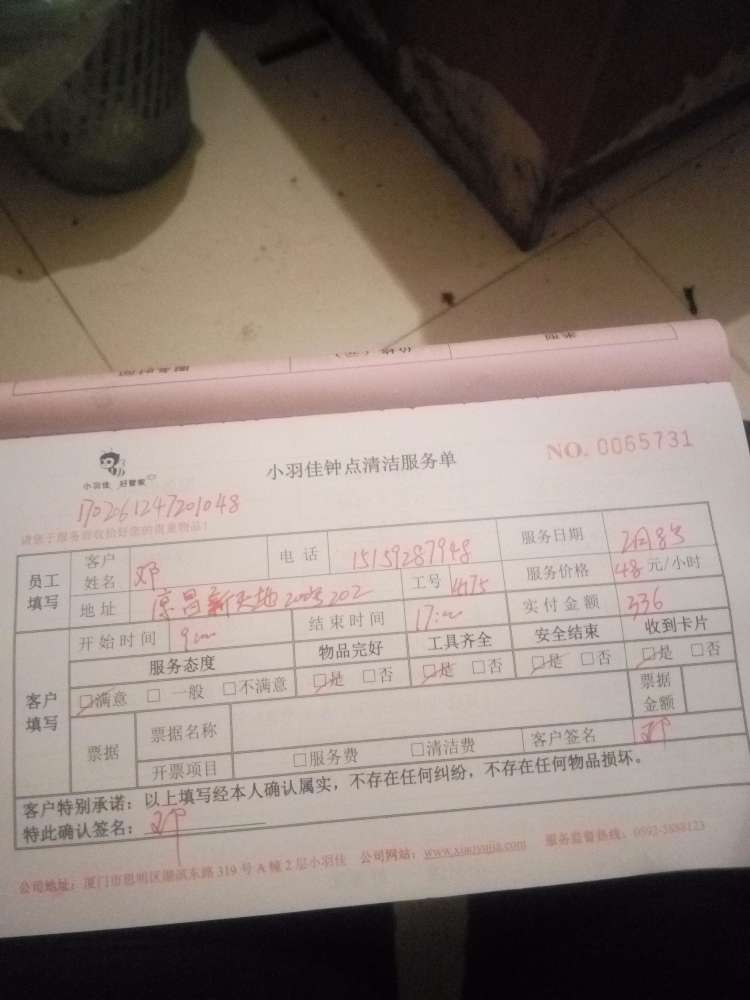 小羽佳 好管家
小羽佳钟点清洁服务单
NO. 0065731
170261247201048
请您于服务前收拾好您的贵重物品!
员工填写 客户姓名 邓 电话 15159287948 服务日期 2月8号
地址 新天地 202 工号 1475 服务价格 48元/小时
客户填写 开始时间 9:00 结束时间 17:00 实付金额 336
服务态度 物品完好 工具齐全 安全结束 收到卡片
□满意 □一般 □不满意 □是 □否 □是 □否 □是 □否 □是 □否
票据 票据名称 票据金额
开票项目 □服务费 □清洁费 客户签名 邓
客户特别承诺:以上填写经本人确认属实,不存在任何纠纷,不存在任何物品损坏。
特此确认签名: 邓
公司地址:厦门市思明区湖滨东路 319 号 A 幢 2 层小羽佳 公司网站:www.xiaoyujia.com 服务监督热线:0592-5888123